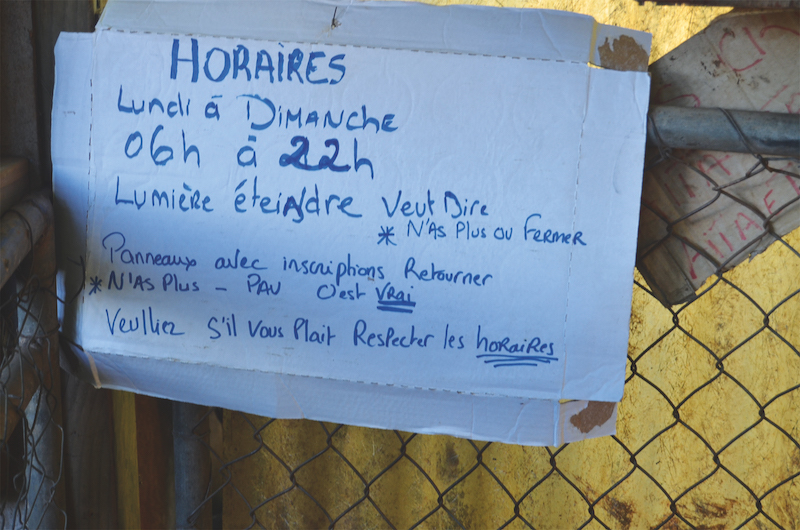 HORAIRES
Lundi à DIMANCHE
06h à 22h
Lumière éteindre Veut Dire
* N'As Plus ou Fermer
Panneaux avec inscriptions Retourner
* N'As Plus - PAU c'est Vrai
Veulliez s'il vous Plait Respecter les horaires